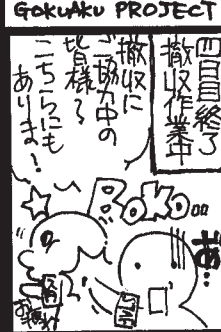 GOKUAKU PROJECT
四日目終了
撤収作業中
撤収に
ご協力中の
皆様〜
こちらにも
ありま!
BOKO
あ…